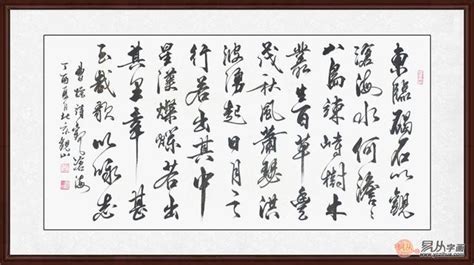 東臨碣石以觀
滄海水何澹々
山島竦峙樹木
叢生百草豐
茂秋風蕭瑟洪
波湧起日月之
行若出其中
星漢燦爛若出
其里幸甚
至哉歌以詠志
曹操詩觀滄海
丁酉夏月北京
易从字画
www.yczihua.com